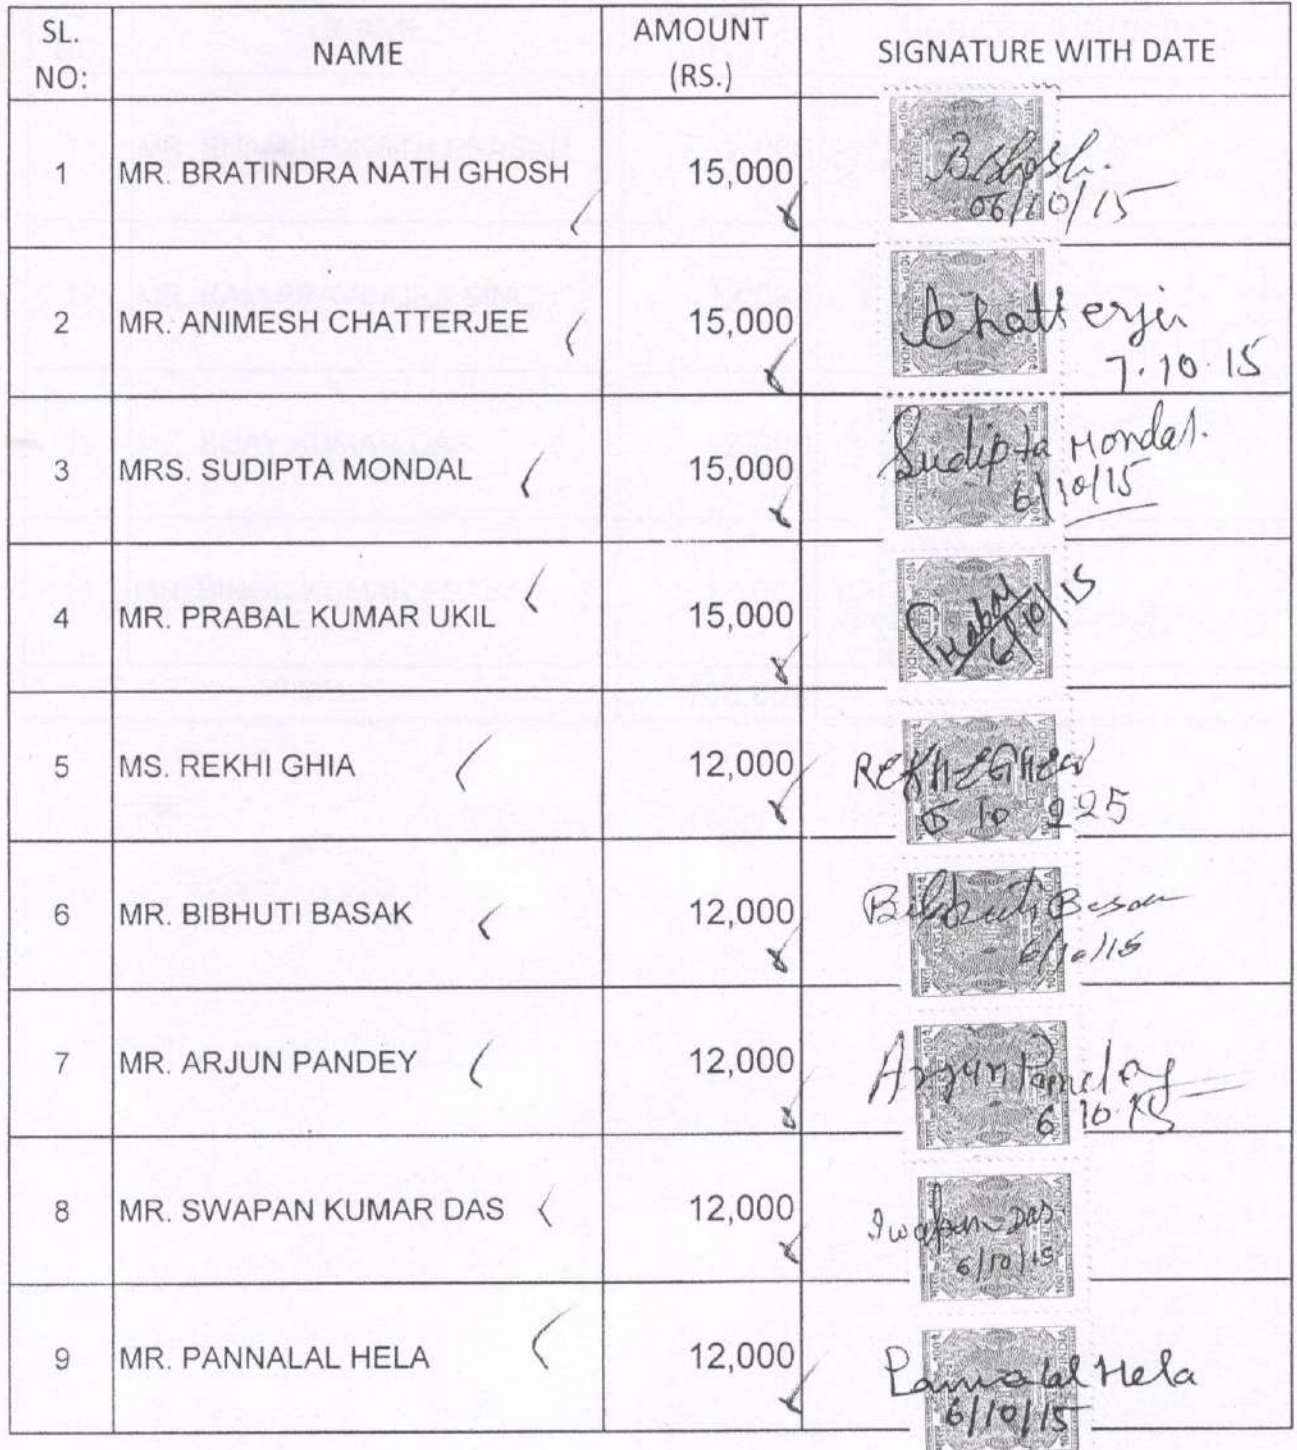 SL. NO: NAME AMOUNT (RS.) SIGNATURE WITH DATE
1 MR. BRATINDRA NATH GHOSH 15,000 BGhosh. 06/10/15
2 MR. ANIMESH CHATTERJEE 15,000 AChatterjee 7.10.15
3 MRS. SUDIPTA MONDAL 15,000 Sudipta Mondal. 6/10/15
4 MR. PRABAL KUMAR UKIL 15,000 Prabal 6/10/15
5 MS. REKHI GHIA 12,000
6 MR. BIBHUTI BASAK 12,000 Bibhuti Basak 6/10/15
7 MR. ARJUN PANDEY 12,000 Arjun Pandey 6.10.15
8 MR. SWAPAN KUMAR DAS 12,000 Swapan Das 6/10/15
9 MR. PANNALAL HELA 12,000 Pannalal Hela 6/10/15